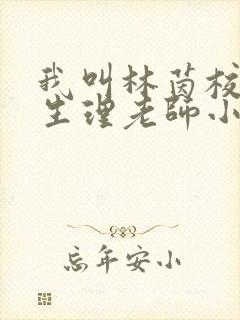 我叫林茵校
生理老师小
忘年安小